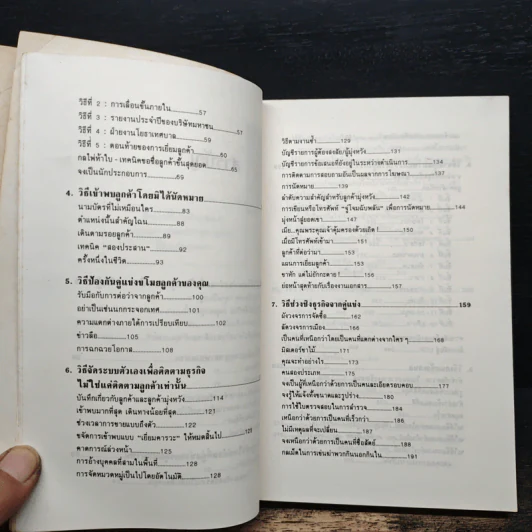 วิธีที่ 2 : การเลื่อนชั้นภายใน 57
วิธีที่ 3 : รายงานประจำปีของบริษัทมหาชน 57
วิธีที่ 4 : ฝ่ายงานโยธาเทศบาล 59
วิธีที่ 5 : ตอนท้ายของการเยี่ยมลูกค้า 60
กลไฟท้าใบ - เทคนิคขอชื่อลูกค้าขั้นสุดยอด 65
จงเป็นนักประกอบการ 69
4. วิธีเข้าพบลูกค้าโดยมิได้นัดหมาย 74
นามบัตรที่ไม่เหมือนใคร 83
ตำแหน่งนั้นสำคัญไฉน 88
เดินตามรอยลูกค้า 89
เทคนิค "สองประสาน" 92
ครั้งหนึ่งในชีวิต 93
5. วิธีป้องกันคู่แข่งขโมยลูกค้าของคุณ
รับมือกับการต่อว่าจากลูกค้า 100
อย่าเป็นเช่นนกกระจอกเทศ 101
ความแตกต่างภายใต้การเปรียบเทียบ
ข่าวลือ 105
การฉกฉวยโอกาส 108
6. วิธีจัดระบบตัวเองเพื่อติดตามธุรกิจ
ไม่ใช่แค่ติดตามลูกค้าเท่านั้น
บันทึกเกี่ยวกับลูกค้าและลูกค้ามุ่งหวัง 114
เข้าพบมากที่สุด เดินทางน้อยที่สุด 121
ช่วงเวลาการขายแบบถึงตัว 122
ขจัดการเข้าพบแบบ "เยี่ยมคารวะ" ให้หมดสิ้นไป
คาดการณ์ล่วงหน้า 125
การอ้างบุคคลที่สามในพื้นที่ 126
การจัดหมวดหมู่เป็นไปโดยอัตโนมัติ 128
วิธีตามงานซ้ำ 129
บัญชีรายการผู้ต้องสงสัย/ผู้มุ่งหวัง 131
บัญชีรายการข้อเสนอที่ยังอยู่ในระหว่างดำเนินการ 134
การติดตามการสอบถามอันเป็นผลจากการโฆษณา 134
การนัดหมาย 139
ลำดับความสำคัญสำหรับลูกค้ามุ่งหวัง 141
การเขียนหรือโทรศัพท์ "จู่โจมฉับพลัน" เพื่อการนัดหมาย 144
มุ่งหน้าสู่ยอดเขา 147
เมีย..คุณพระคุณเจ้าคุ้มครองด้วยเถิด ! 150
เมื่อมีโทรศัพท์เข้ามา 151
ลูกค้าที่ต่อว่ามา 153
แผนการเยี่ยมลูกค้า 153
ขาหัก แต่ไม่ยักกะตาย ! 156
ย่อหน้าสุดท้ายกับเรื่องงานเอกสาร 157
7. วิธีช่วงชิงธุรกิจจากคู่แข่ง 159
ผังวงจรการจัดซื้อ 162
ลัดวงจรการเมือง 166
เป็นคนที่เหนือกว่าโดยเป็นคนที่แตกต่างจากใคร ๆ 168
มิสเตอร์ขาไม้ 171
คุณจะทำอย่างไร 173
คนสองประเภท 174
จงเป็นผู้ที่เหนือกว่าด้วยการเป็นคนละเอียดรอบคอบ 177
จงรู้ให้แจ้งทั้งขนาดและรูปร่าง 180
การใช้ใบตรวจสอบในการสำรวจ 182
เหนือกว่าด้วยการเป็นคนที่เร็วกว่า 184
ไม่มีเหตุผลที่จะเปลี่ยน 187
จงเหนือกว่าด้วยการเป็นคนที่ซื่อสัตย์ 187
กลเม็ดในการเข่นฆ่าพวกกินนอกกินใน 191